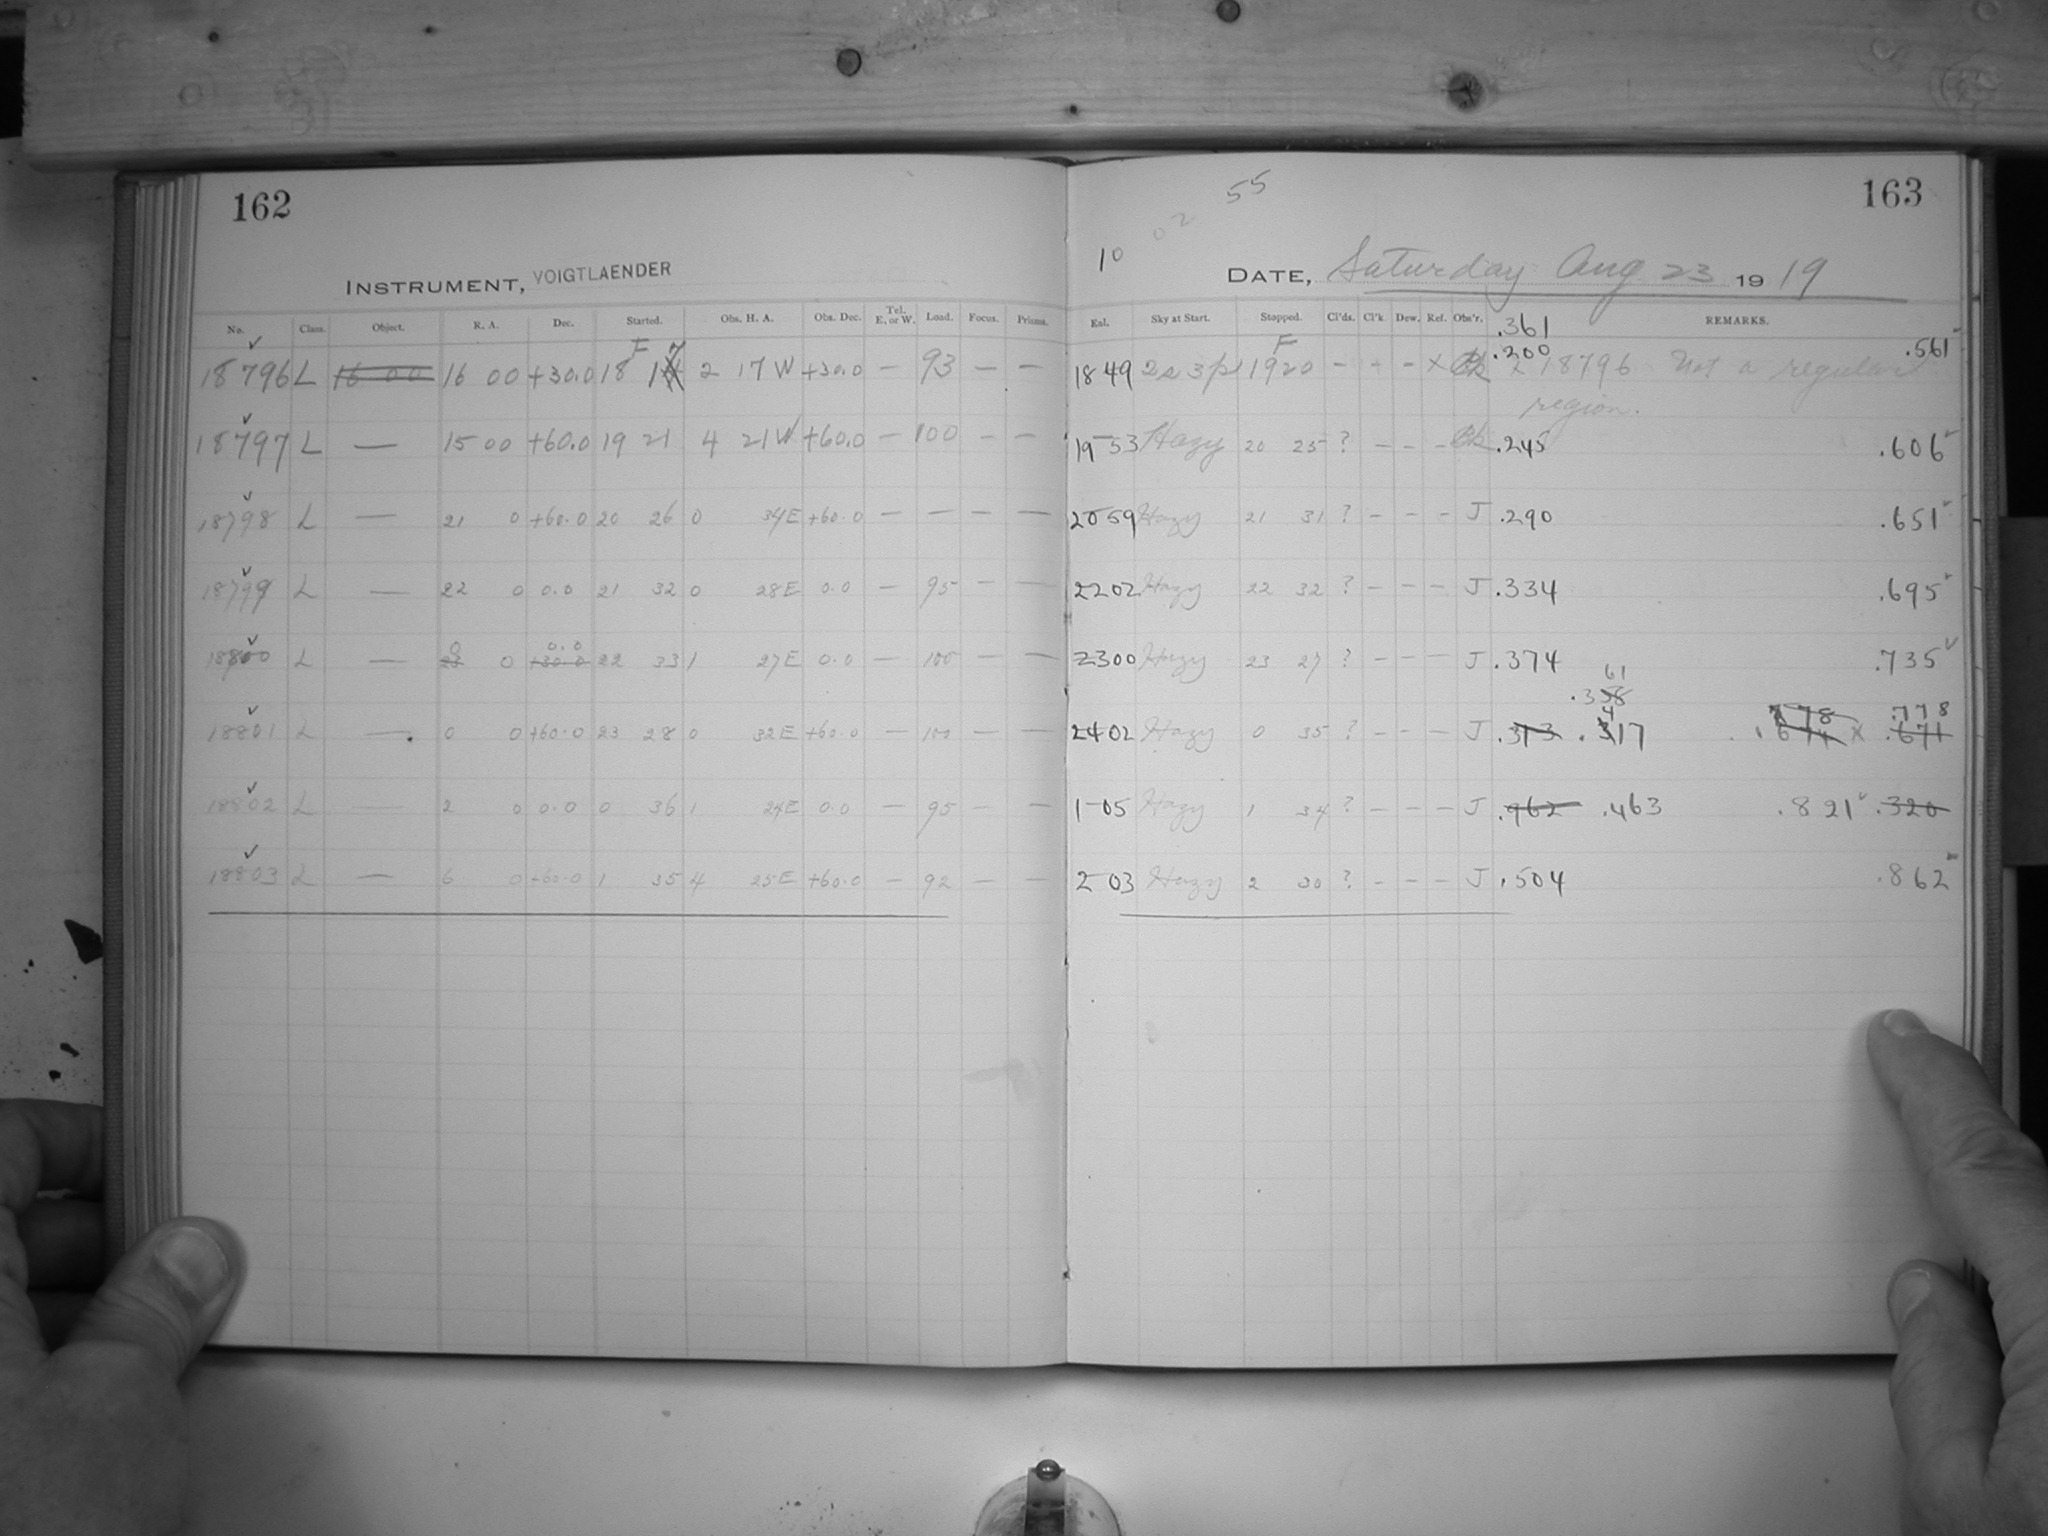 162
INSTRUMENT, VOIGTLAENDER
No. Class. Object. R. A. Dec. Started. Obs. H. A. Obs. Dec. Tel. E. or W. Load. Focus. Prisms.
18796 L 16 00 16 00 +30.0 18 F 17 2 17 W +30.0 — 93 — —
18797 L — 15 00 +60.0 19 21 4 21 W +60.0 — 100 — —
18798 L — 21 0 +60.0 20 26 0 34 E +60.0 — — — —
18799 L — 22 0 0.0 21 32 0 28 E 0.0 — 95 — —
18800 L — 23 0 0 +30.0 0.0 22 33 1 27 E 0.0 — 100 — —
18801 L — 0 0 +60.0 23 28 0 32 E +60.0 — 100 — —
18802 L — 2 0 0.0 0 36 1 24 E 0.0 — 95 — —
18803 L — 6 0 +60.0 1 35 4 25 E +60.0 — 92 — —
163
55
02
10
DATE, Saturday Aug 23 1919
Exl. Sky at Start. Stopped. Cl'ds. Cl'k. Dew. Ref. Obs'r. REMARKS.
.361
18 49 2a 3p F 19 20 — + — x .200 18796 Not a regular .561
region.
19 53 Hazy 20 25 ? — — — .245 .606
20 59 Hazy 21 31 ? — — — J .290 .651
22 02 Hazy 22 32 ? — — — J .334 .695
23 00 Hazy 23 27 ? — — — J .374 .735
61
.358
4 778 .778
24 02 Hazy 0 35 ? — — — J .373 .317 .674 x .671
1 05 Hazy 1 34 ? — — — J .962 .463 .821 .320
2 03 Hazy 2 30 ? — — — J .504 .862